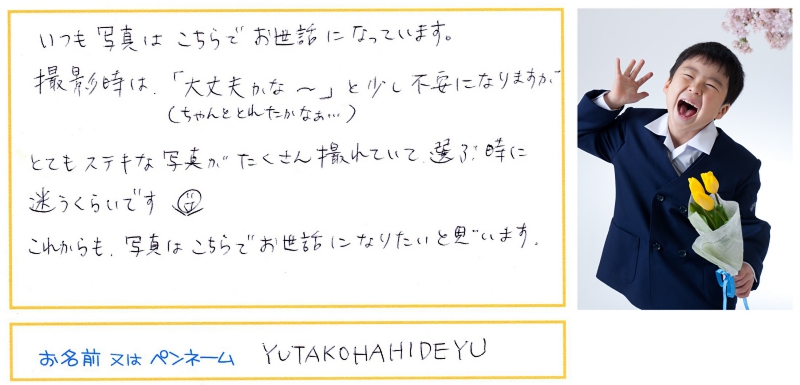 いつも写真はこちらでお世話になっています。
撮影時は、「大丈夫かな〜」と少し不安になりますが
(ちゃんととれたかなぁ…)
とてもステキな写真がたくさん撮れていて、選ぶ時に
迷うくらいです
これからも、写真はこちらでお世話になりたいと思います。
お名前 又は ペンネーム YUTAKOHAHIDEYU